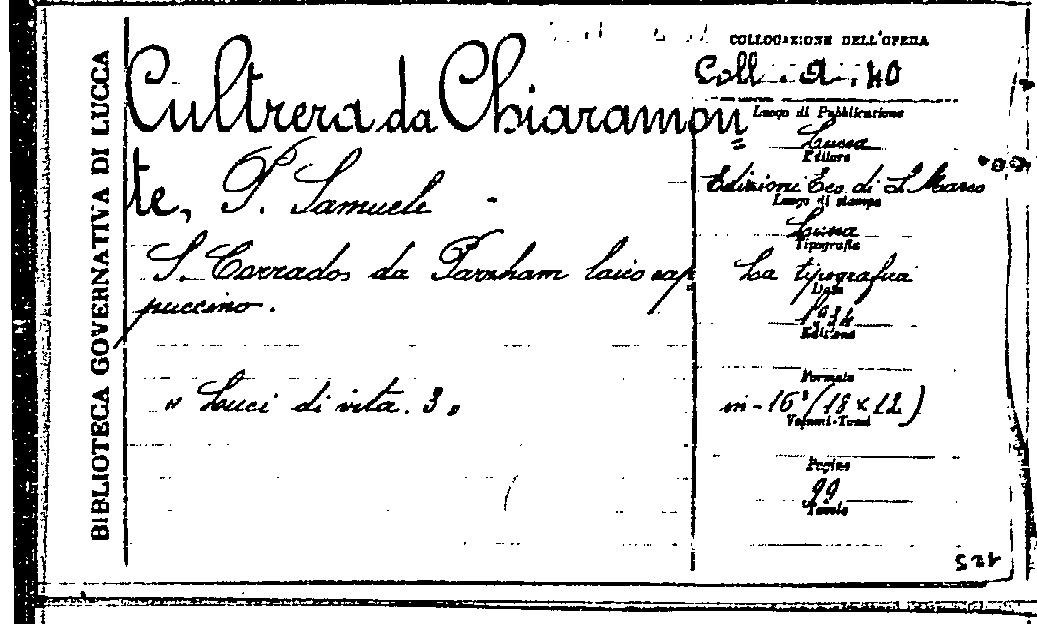 BIBLIOTECA GOVERNATIVA DI LUCCA
Cultrera da Chiaramon=
te, P. Samuele -
S. Corrados da Parzham laico cap
puccino.
" Luci di vita. 3 "
COLLOCAZIONE DELL'OPERA
Coll. a. 40
Luogo di Pubblicazione
Lucca
Editore
Edizioni Eco di S. Marco
Luogo di stampa
Lucca
Tipografia
La tipografica
Data
1934
Edizione
Formato
in-16° (18 x 12)
Volumi-Tomi
Pagine
99
Tavole